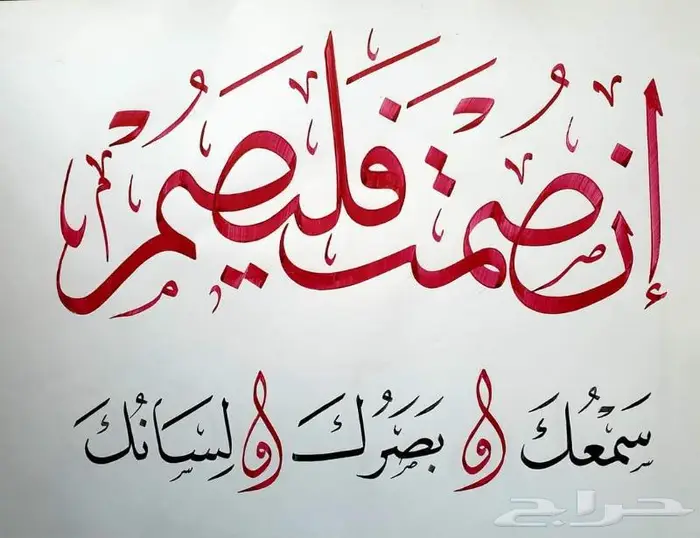 إن صُمْتَ فَليَصُمْ
سَمْعُكَ و بَصَرُكَ و لِسَانُكَ
حراج